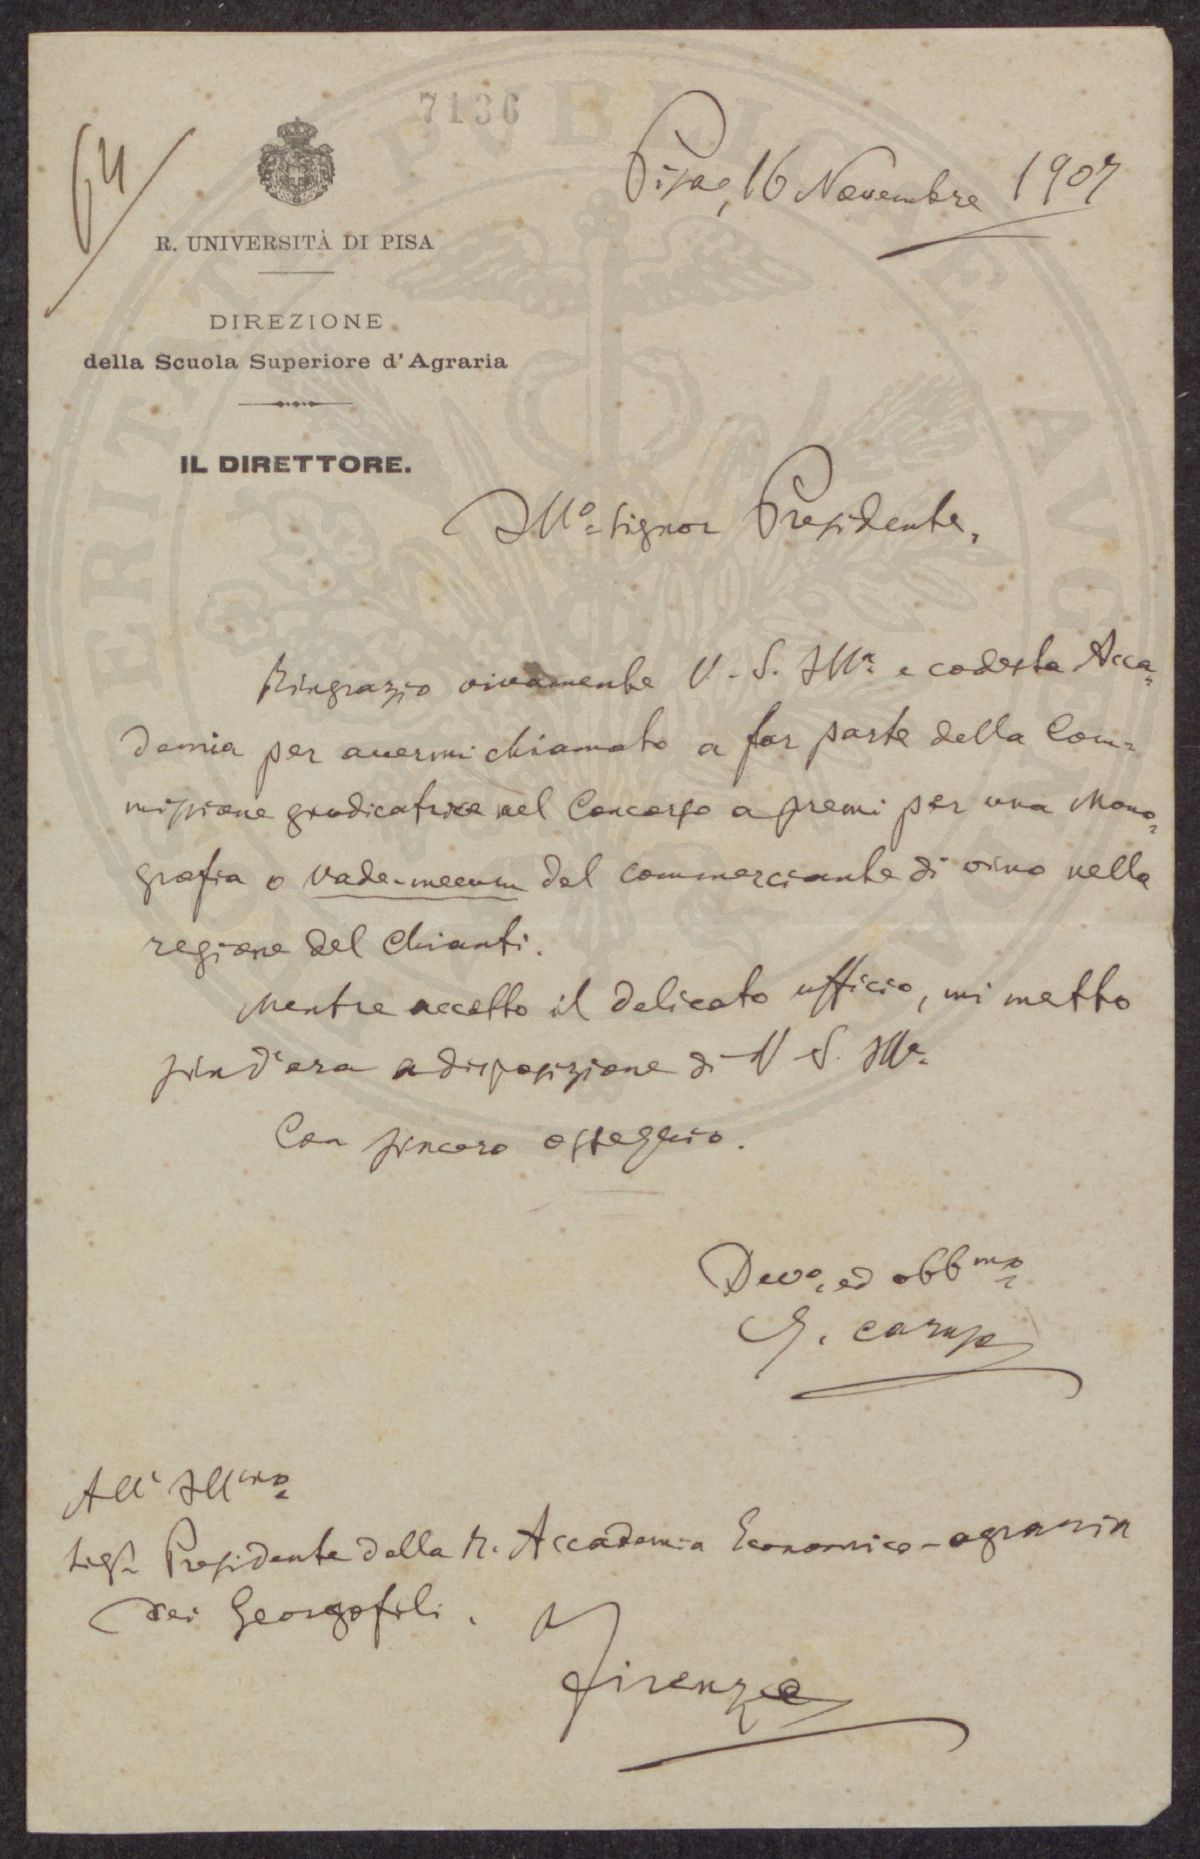 7136
64
R. UNIVERSITÀ DI PISA
DIREZIONE
della Scuola Superiore d'Agraria
IL DIRETTORE.
Pisa, 16 Novembre 1907
Illo. Signor Presidente,
Ringrazio vivamente V. S. Illa. e codesta Acca=
demia per avermi chiamato a far parte della Com=
missione giudicatrice nel Concorso a premi per una Mono=
grafia o Vade-mecum del commerciante di vino nella
regione del Chianti.
Mentre accetto il delicato ufficio, mi metto
sin d'ora a disposizione di V. S. Illa.
Con sincero osseqquio.
Devo. ed obbmo.
G. Caruso
All' Illmo.
Sigr. Presidente della R. Accademia Economico-agraria
dei Georgofili.
Firenze